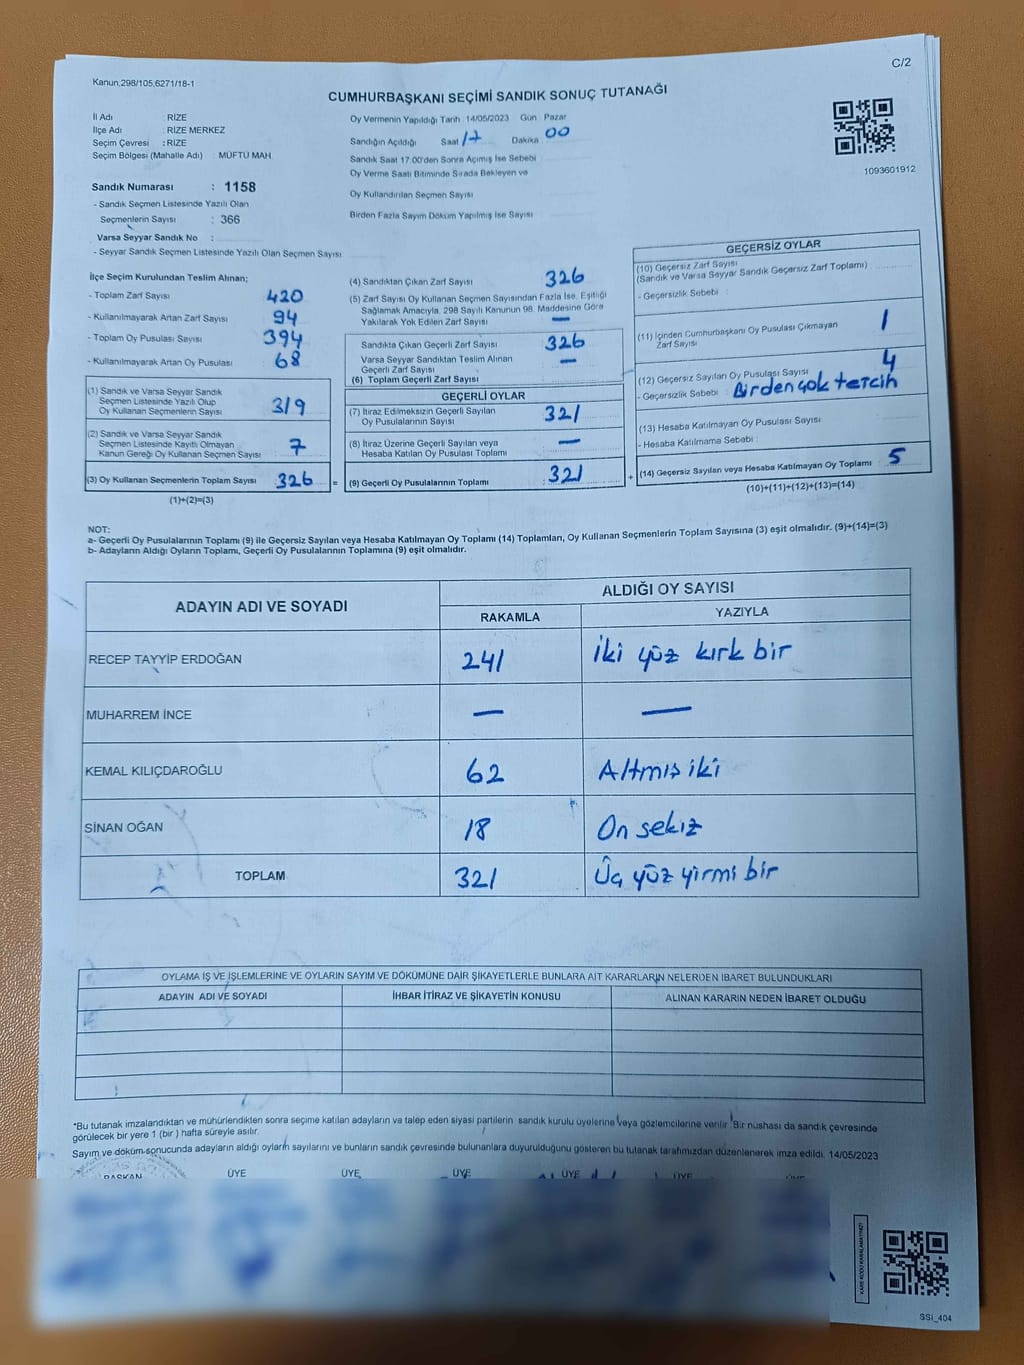 C/2
Kanun;298/105,6271/18-1
CUMHURBAŞKANI SEÇİMİ SANDIK SONUÇ TUTANAĞI
İl Adı : RİZE
İlçe Adı : RİZE MERKEZ
Seçim Çevresi : RİZE
Seçim Bölgesi (Mahalle Adı) : MÜFTÜ MAH.
Sandık Numarası : 1158
- Sandık Seçmen Listesinde Yazılı Olan
Seçmenlerin Sayısı : 366
Varsa Seyyar Sandık No :
- Seyyar Sandık Seçmen Listesinde Yazılı Olan Seçmen Sayısı
Oy Vermenin Yapıldığı Tarih 14/05/2023 Gün Pazar
Sandığın Açıldığı Saat 17 Dakika 00
Sandık Saat 17:00'den Sonra Açımış İse Sebebi
Oy Verme Saati Bitiminde Sırada Bekleyen ve
Oy Kullandırılan Seçmen Sayısı
Birden Fazla Sayım Döküm Yapılmış İse Sayısı
1093601912
İlçe Seçim Kurulundan Teslim Alınan;
- Toplam Zarf Sayısı 420
- Kullanılmayarak Artan Zarf Sayısı 94
- Toplam Oy Pusulası Sayısı 394
- Kullanılmayarak Artan Oy Pusulası 68
(1) Sandık ve Varsa Seyyar Sandık
Seçmen Listesinde Yazılı Olup
Oy Kullanan Seçmenlerin Sayısı 319
(2) Sandık ve Varsa Seyyar Sandık
Seçmen Listesinde Kayıtlı Olmayan
Kanun Gereği Oy Kullanan Seçmen Sayısı 7
(3) Oy Kullanan Seçmenlerin Toplam Sayısı 326 =
(1)+(2)=(3)
(4) Sandıktan Çıkan Zarf Sayısı 326
(5) Zarf Sayısı Oy Kullanan Seçmen Sayısından Fazla İse, Eşitliği
Sağlamak Amacıyla, 298 Sayılı Kanunun 98. Maddesine Göre
Yakılarak Yok Edilen Zarf Sayısı —
Sandıkta Çıkan Geçerli Zarf Sayısı 326
Varsa Seyyar Sandıktan Teslim Alınan
Geçerli Zarf Sayısı —
(6) Toplam Geçerli Zarf Sayısı
GEÇERLİ OYLAR
(7) İtiraz Edilmeksizin Geçerli Sayılan
Oy Pusulalarının Sayısı 321
(8) İtiraz Üzerine Geçerli Sayılan veya
Hesaba Katılan Oy Pusulası Toplamı —
(9) Geçerli Oy Pusulalarının Toplamı 321 +
GEÇERSİZ OYLAR
(10) Geçersiz Zarf Sayısı
(Sandık ve Varsa Seyyar Sandık Geçersiz Zarf Toplamı)
- Geçersizlik Sebebi :
(11) İçinden Cumhurbaşkanı Oy Pusulası Çıkmayan
Zarf Sayısı 1
(12) Geçersiz Sayılan Oy Pusulası Sayısı 4
- Geçersizlik Sebebi : Birden çok tercih
(13) Hesaba Katılmayan Oy Pusulası Sayısı
- Hesaba Katılmama Sebebi :
(14) Geçersiz Sayılan veya Hesaba Katılmayan Oy Toplamı 5
(10)+(11)+(12)+(13)=(14)
NOT:
a- Geçerli Oy Pusulalarının Toplamı (9) ile Geçersiz Sayılan veya Hesaba Katılmayan Oy Toplamı (14) Toplamları, Oy Kullanan Seçmenlerin Toplam Sayısına (3) eşit olmalıdır. (9)+(14)=(3)
b- Adayların Aldığı Oyların Toplamı, Geçerli Oy Pusulalarının Toplamına (9) eşit olmalıdır.
ADAYIN ADI VE SOYADI ALDIĞI OY SAYISI
RAKAMLA YAZIYLA
RECEP TAYYİP ERDOĞAN 241 İki yüz kırk bir
MUHARREM İNCE — —
KEMAL KILIÇDAROĞLU 62 Altmış iki
SİNAN OĞAN 18 On sekiz
TOPLAM 321 Üç yüz yirmi bir
OYLAMA İŞ VE İŞLEMLERİNE VE OYLARIN SAYIM VE DÖKÜMÜNE DAİR ŞİKAYETLERLE BUNLARA AİT KARARLARIN NELERDEN İBARET BULUNDUKLARI
ADAYIN ADI VE SOYADI İHBAR İTİRAZ VE ŞİKAYETİN KONUSU ALINAN KARARIN NEDEN İBARET OLDUĞU
*Bu tutanak imzalandıktan ve mühürlendikten sonra seçime katılan adayların ve talep eden siyasi partilerin sandık kurulu üyelerine veya gözlemcilerine verilir. Bir nüshası da sandık çevresinde
görülecek bir yere 1 (bir) hafta süreyle asılır.
Sayım ve döküm sonucunda adayların aldığı oyların sayılarını ve bunların sandık çevresinde bulunanlara duyurulduğunu gösteren bu tutanak tarafımızdan düzenlenerek imza edildi. 14/05/2023
BAŞKAN ÜYE ÜYE ÜYE ÜYE ÜYE ÜYE
SSİ_404